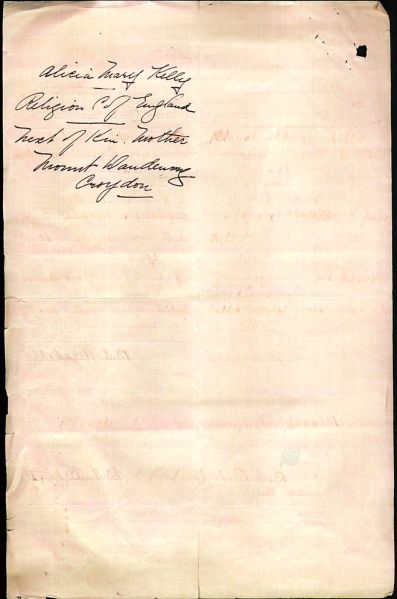 Alicia Mary Kelly
Religion C of England
Next of Kin. Mother
Mount Dandenong
Croydon